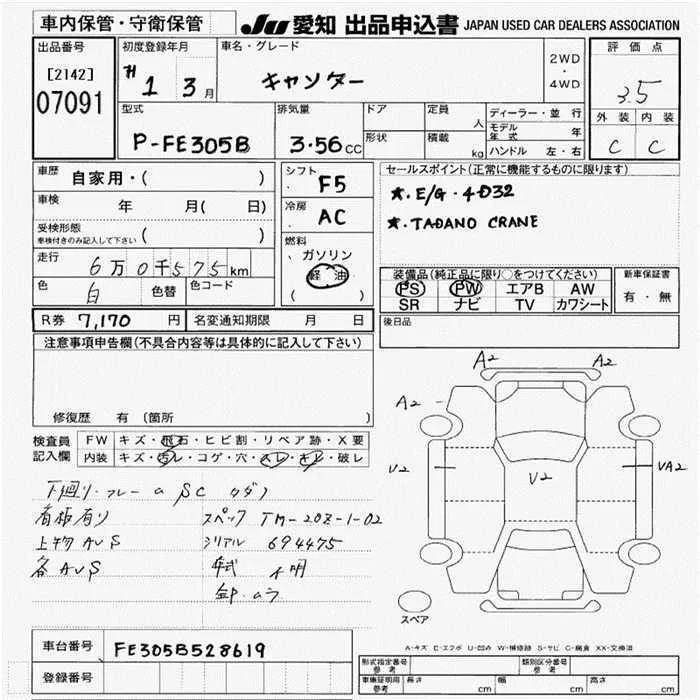 車内保管・守衛保管
JU 愛知 出品申込書 JAPAN USED CAR DEALERS ASSOCIATION
出品番号
[2142]
07091
初度登録年月
H 1 3月
車名・グレード
キャンター
2WD
・
4WD
評価点
3.5
外装 内装
C C
型式
P-FE305B
排気量
3.56cc
ドア
形状
定員
人
積載
kg
ディーラー・並行
モデル年式 年
ハンドル 左・右
車歴
自家用・( )
車検
年 月( 日)
受検形態
車検付きのみ記入して下さい
( )
走行
6万0千575km
色
白
色替
色コード
シフト
F5
冷房
AC
燃料
ガソリン
軽油
( )
セールスポイント(正常に機能するものに限ります)
★.E/G.4D32
★.TADANO CRANE
装備品(純正品に限り○をつけてください)
PS PW エアB AW
SR ナビ TV カワシート
新車保証書
有・無
後日品
R券 7,170 円
名変通知期限 月 日
注意事項申告欄(不具合内容等は具体的に記入して下さい)
修復歴 有 (箇所 )
検査員
記入欄
FW キズ・飛石・ヒビ割・リペア跡・X要
内装 キズ・汚レ・コゲ・穴・スレ・キレ・破レ
下廻り・フレーム SC
看板有り スペック TM-20Z-1-02
上物AUS シリアル 694475
各AUS 年式 不明
A2 A2
A2
U2 U2 UA2
スペア
A-キズ E-エクボ U-凹み W-補修跡 S-サビ C-腐食 XX-交換済
車台番号 FE305B528619
登録番号
形式指定番号
参考
類別区分番号
参考
車庫証明用
参考
長さ cm 幅 cm 高さ cm